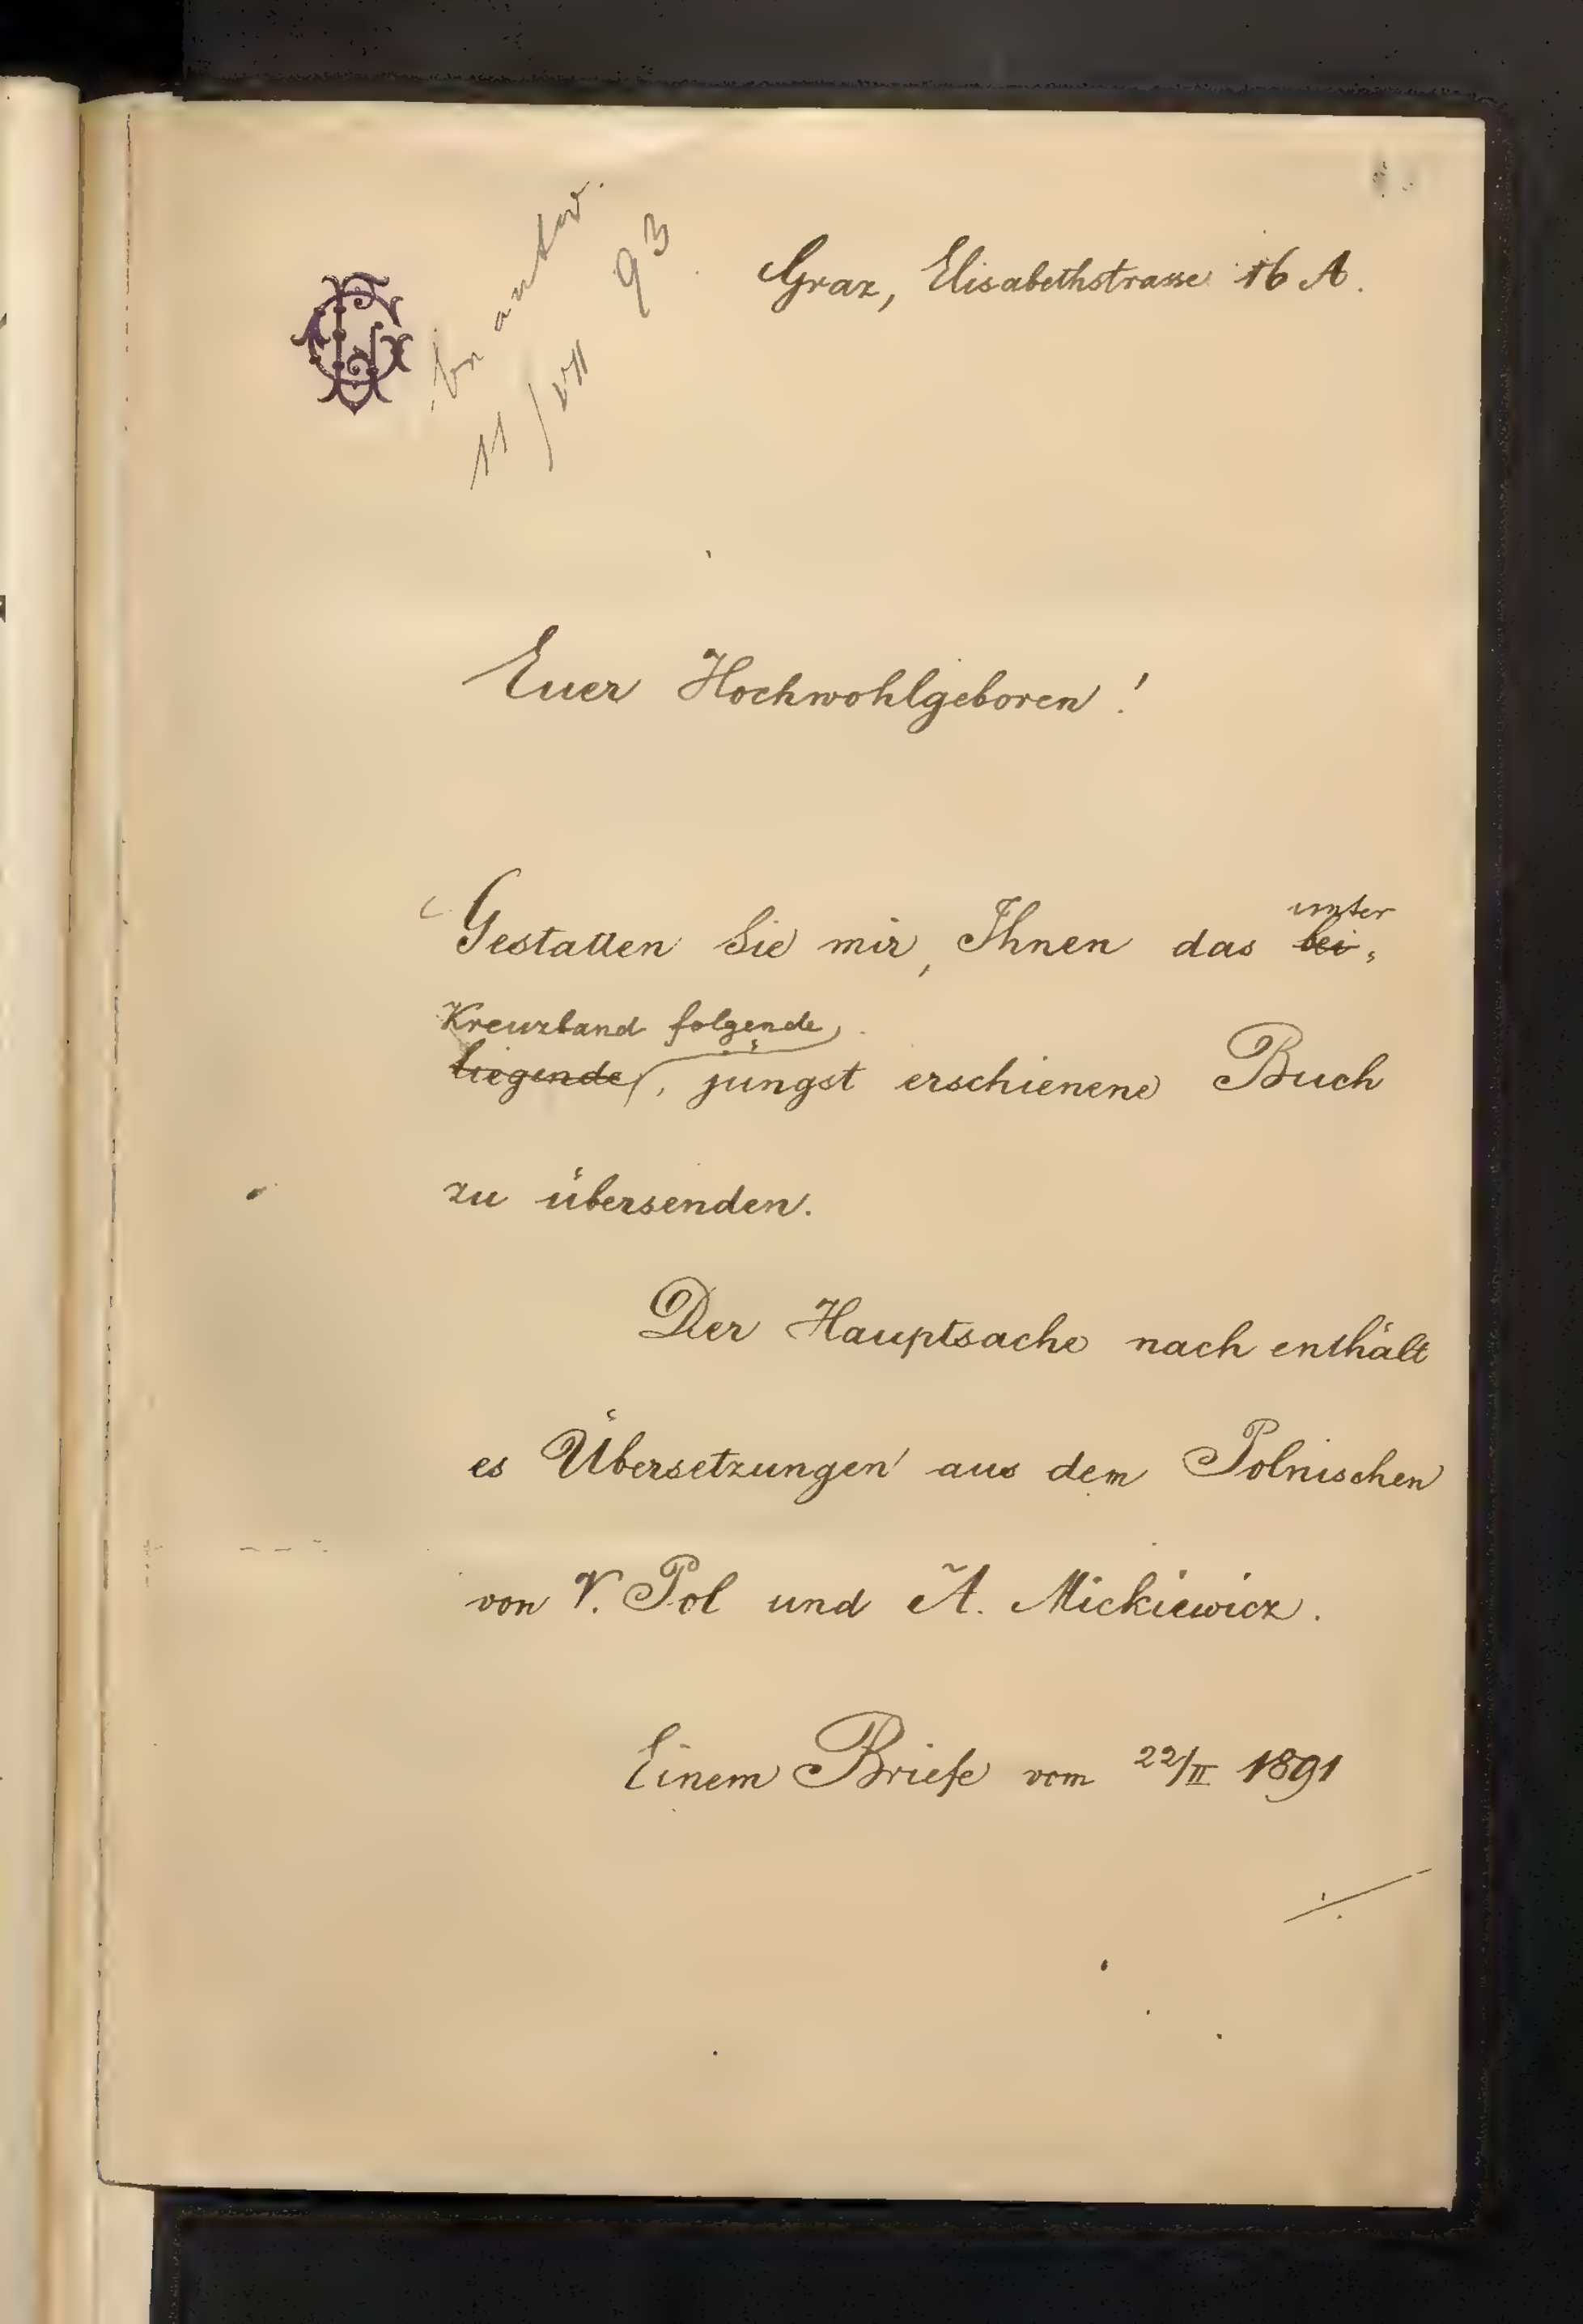 beantw.
11/VII 93
Graz, Elisabethstrasse 16 A.
Euer Hochwohlgeboren!
Gestatten Sie mir, Ihnen das bei- unter
Kreuzband folgende,
liegende, jüngst erschienene Buch
zu übersenden.
Der Hauptsache nach enthält
es Übersetzungen aus dem Polnischen
von V. Pol und A. Mickiewicz.
Einem Briefe vom 22/II 1891